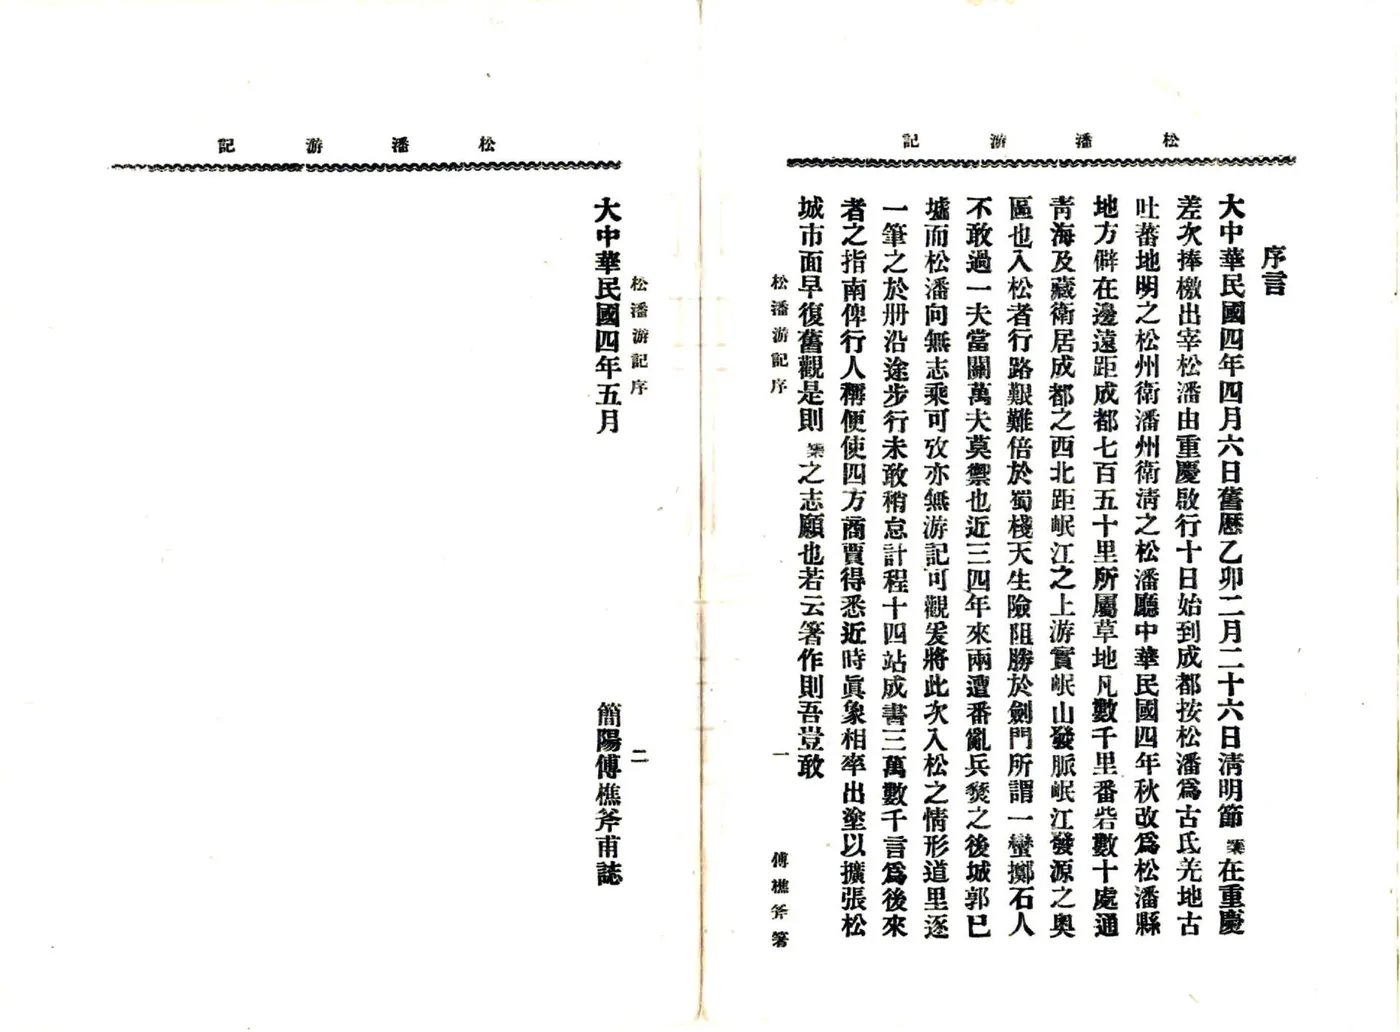 松潘游記
序言
大中華民國四年四月六日舊歷乙卯二月二十六日淸明節樵在重慶
差次捧檄出宰松潘由重慶啟行十日始到成都按松潘爲古氐羌地古
吐蕃地明之松州衛潘州衛淸之松潘廳中華民國四年秋改爲松潘縣
地方僻在邊遠距成都七百五十里所屬草地凡數千里番砦數十處通
靑海及藏衛居成都之西北距岷江之上游實岷山發脈岷江發源之奧
區也入松者行路艱難倍於蜀棧天生險阻勝於劍門所謂一蠻擲石人
不敢過一夫當關萬夫莫禦也近三四年來兩遭番亂兵燹之後城郭已
墟而松潘向無志乘可攷亦無游記可觀爰將此次入松之情形道里逐
一筆之於册沿途步行未敢稍怠計程十四站成書三萬數千言爲後來
者之指南俾行人稱便使四方商賈得悉近時眞象相率出塗以擴張松
城市面早復舊觀是則樵之志願也若云箸作則吾豈敢
松潘游記序
一
傅樵斧箸
松潘游記
松潘游記序
二
大中華民國四年五月
簡陽傅樵斧甫誌